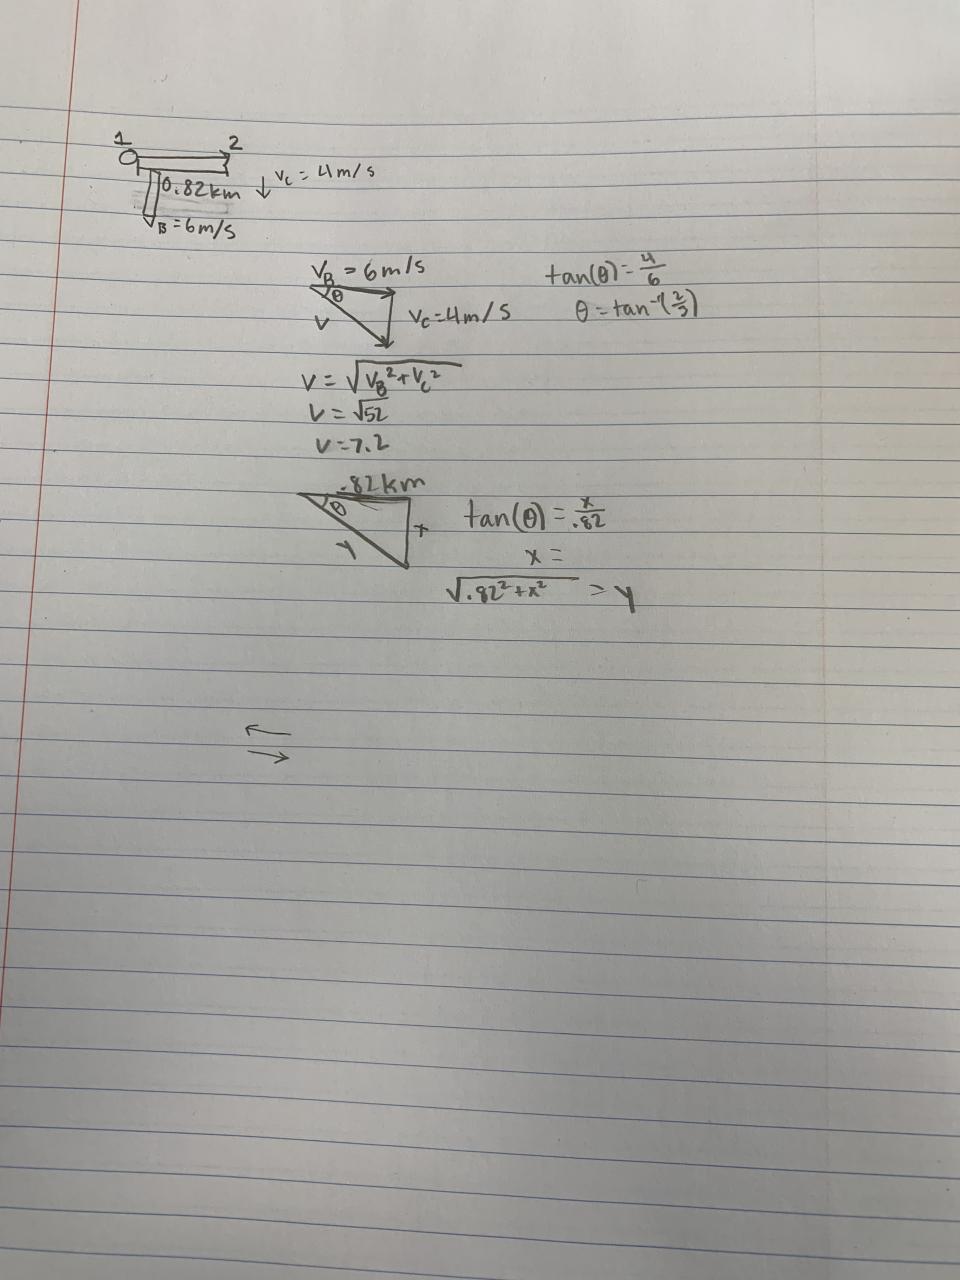 1 2
0.82km ↓ v_c = 4m/s
v_B = 6m/s
V_B = 6m/s
θ
V
V_c = 4m/s
tan(θ) = 4/6
θ = tan⁻¹(2/3)
V = √(V_B² + V_c²)
V = √52
V = 7.2
.82km
θ
x
y
tan(θ) = x/.82
x =
√(.82² + x²) = y
← 
→